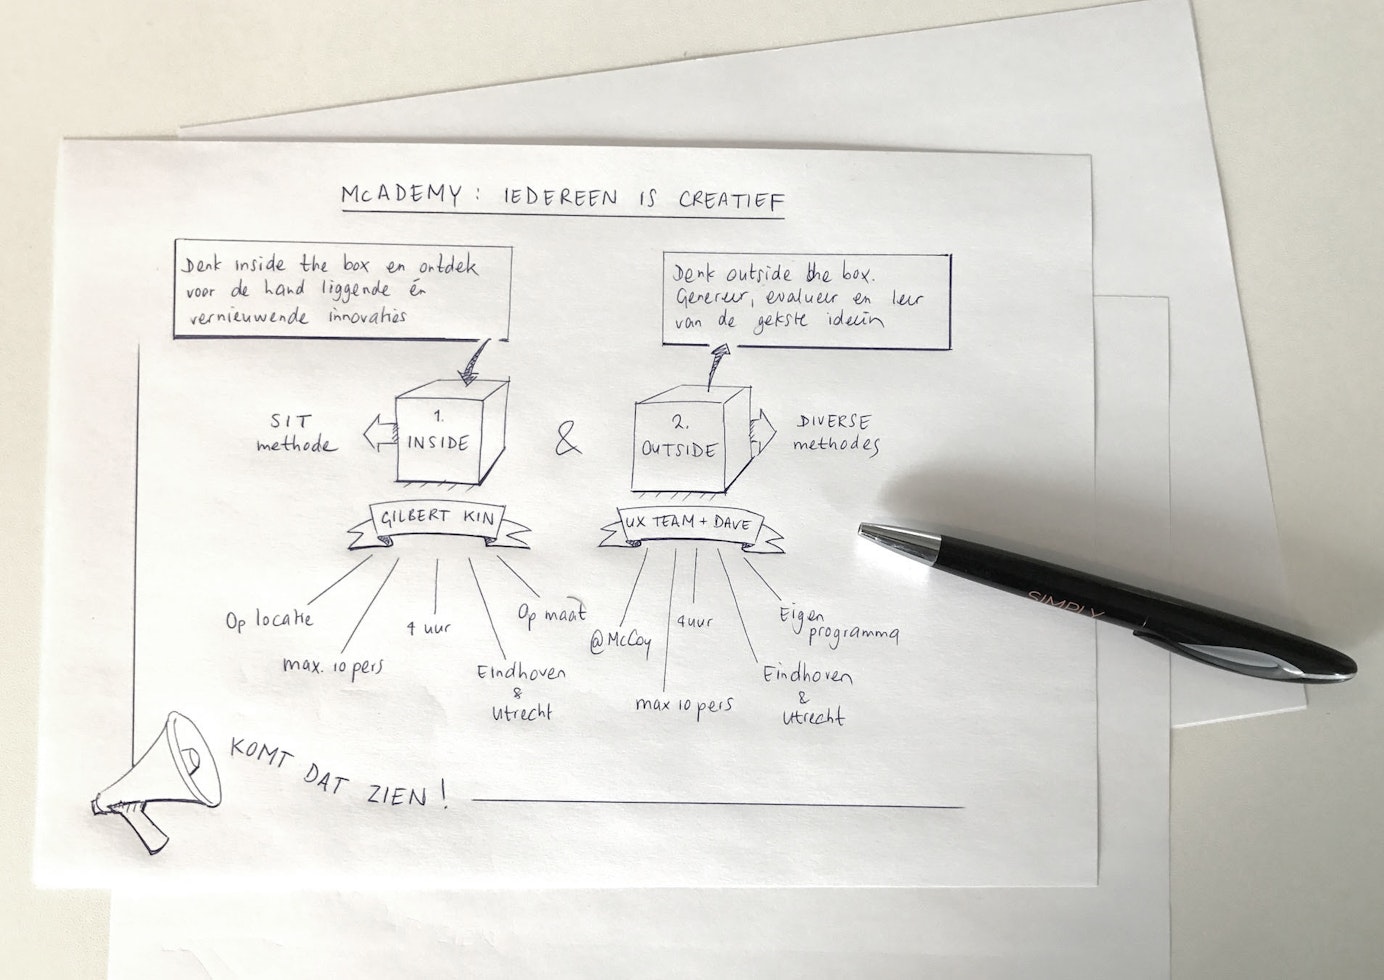 McADEMY : IEDEREEN IS CREATIEF
Denk inside the box en ontdek
voor de hand liggende én
vernieuwende innovaties
Denk outside the box.
Genereer, evalueer en leer
van de gekste ideeën
SIT
methode
1.
INSIDE
&
2.
OUTSIDE
DIVERSE
methodes
GILBERT KIN
UX TEAM + DAVE
Op locatie
max. 10 pers
4 uur
Eindhoven
&
Utrecht
Op maat
@McCoy
max 10 pers
4uur
Eindhoven
&
Utrecht
Eigen
programma
KOMT DAT ZIEN!
SIMPLY